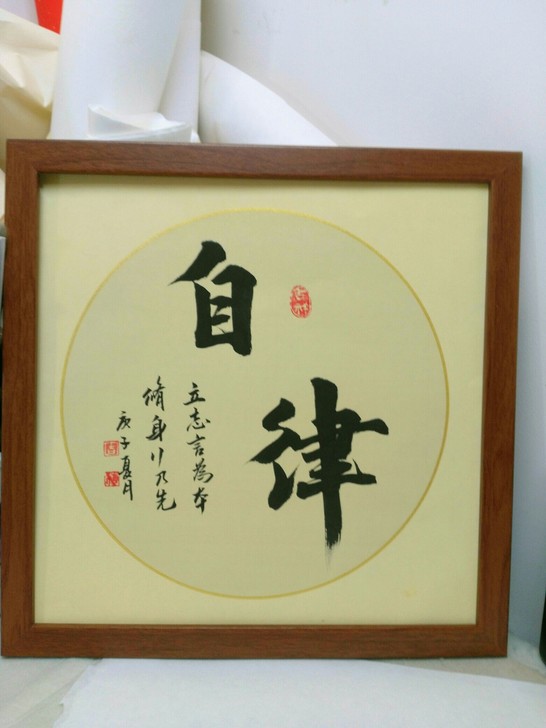 自律
立志言為本
脩身行乃先
庚子夏月